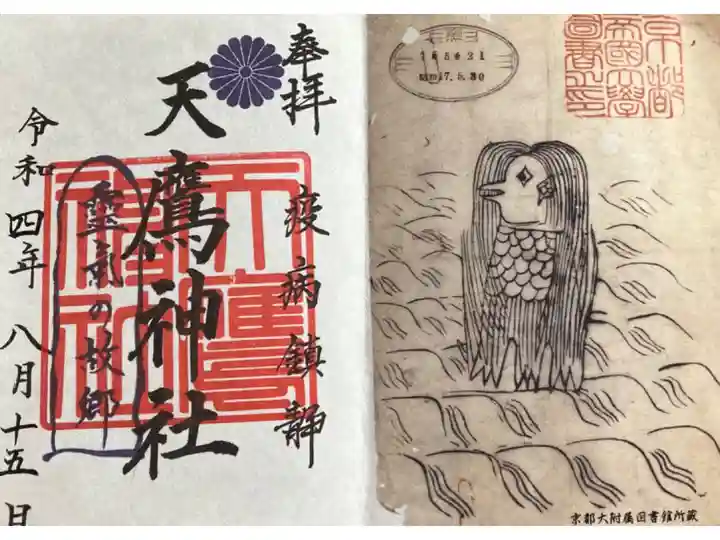 奉拝
疫病鎮静
天鷹神社
天鷹神社
靈氣の故郷
令和四年 八月十五日
185621
17.5.30
京都
帝國大學
圖書之印
京都大附属図書館所蔵